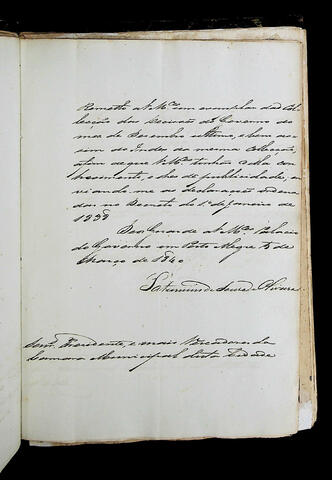 Remetto a V. Mces um exemplar da Col-
lecção das Decisões do Governo do
mez de Dezembro ultimo, e bem as-
sim do Indez da mesma Collecção,
afim de que V. Mces tenhão della co-
nhecimento, e dêm publicidade, en-
viando me as declaração ordena-
das no Decreto do 1º de Janeiro de
1838
Deos Guarde a V. Mces Palacio
do Governo em Porto Alegre 5 de
Março de 1840
Saturnino de Souza e Oliveira
Senrs. Presidente, e mais Vereadores da
Camara Municipal desta Cidade